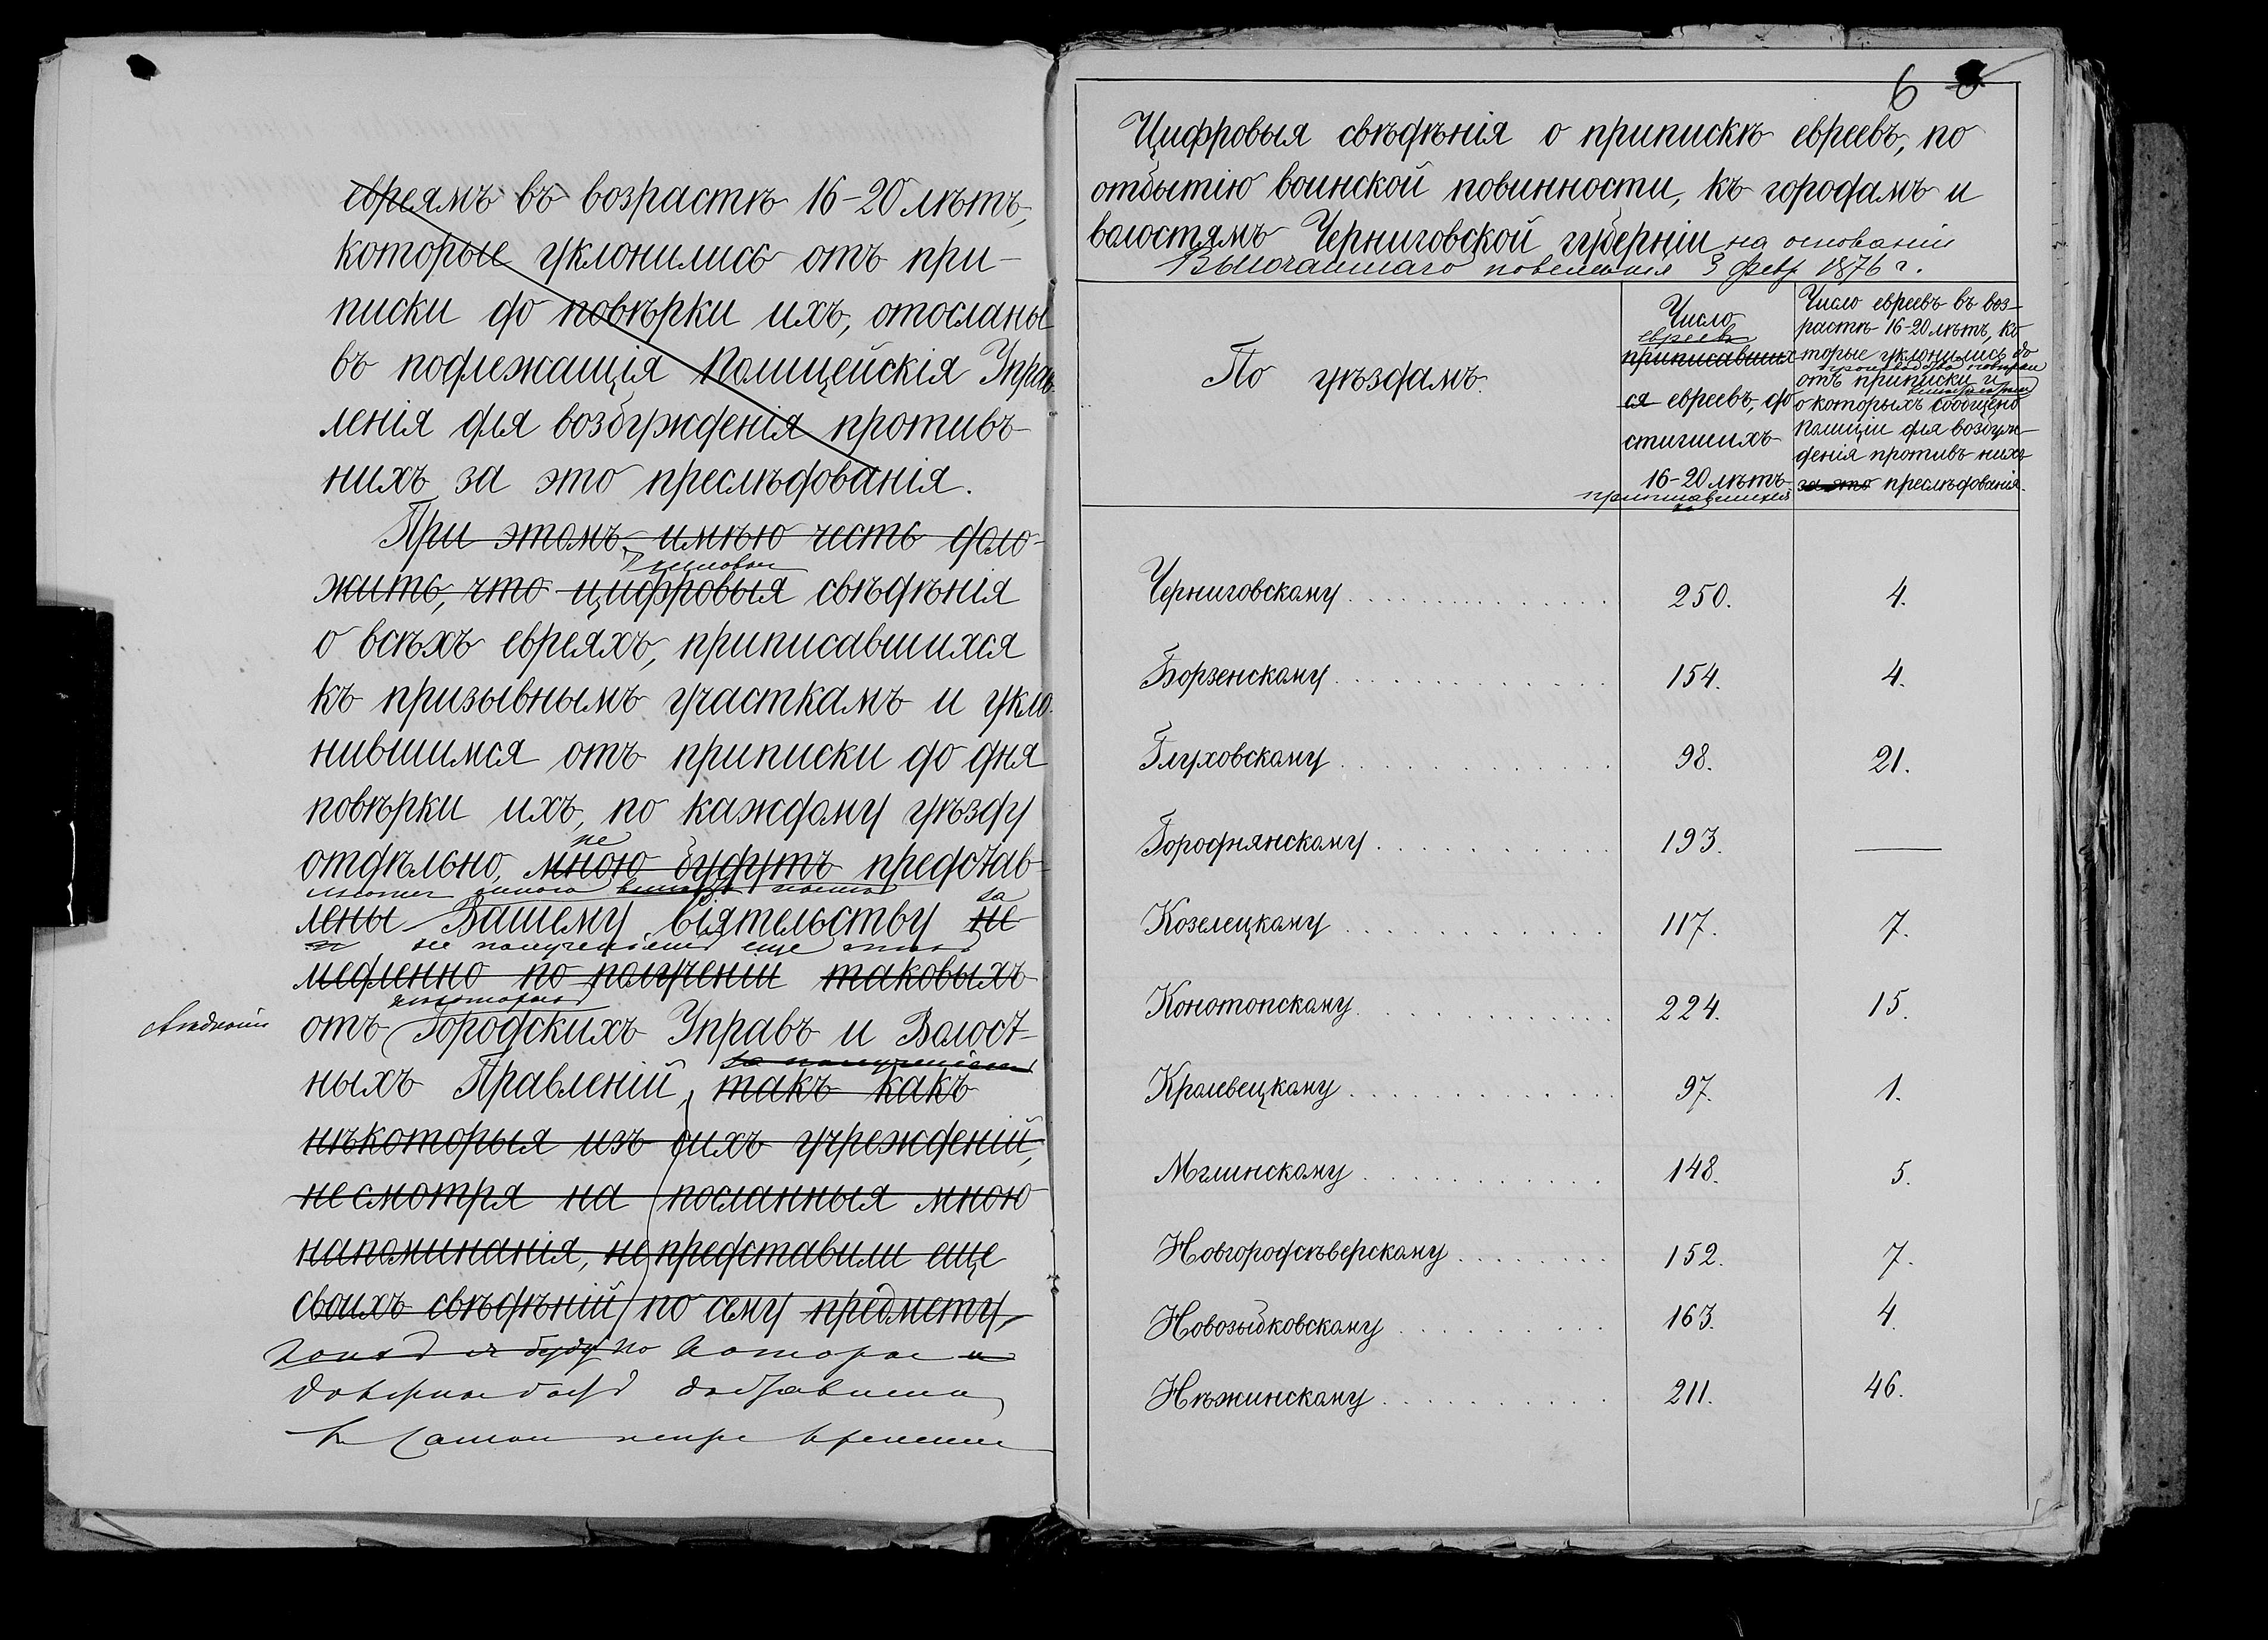 евреямъ въ возрастѣ 16-20 лѣтъ,
которые уклонились отъ при-
писки до повѣрки ихъ, отосланы
въ подлежащія Полицейскія Управ-
ленія для возбужденія противъ
нихъ за это преслѣдованія.
При этомъ имѣю честь доло-
жить, что цифровыя свѣдѣнія
о всѣхъ евреяхъ, приписавшихся
къ призывнымъ участкамъ и укло-
нившимся отъ приписки до дня
повѣрки ихъ, по каждому уѣзду
не
отдѣльно, мною будутъ представ-
за
лены Вашему Сіятельству не
не полученіемъ еще
медленно по полученіи таковыхъ
некоторыхъ
отъ Городскихъ Управъ и Волост-
за полученіемъ
ныхъ Правленій, такъ какъ
нѣкоторыя изъ сихъ учрежденій,
несмотря на посланныя мною
напоминанія, не представили еще
своихъ свѣдѣній по сему предмету,
буду но которые и
доставлены
въ самом непр времени
6
Цифровыя свѣдѣнія о припискѣ евреевъ, по
отбытію воинской повинности, къ городамъ и
волостямъ Черниговской губерніи на основаніи
Высочайшаго повеленія 3 февр 1876 г.
По уѣздамъ.
Число
евреевъ
приписавших
ся евреевъ, до
стигшихъ
16-20 лѣтъ
приписавшихся
Число евреевъ въ воз-
растѣ 16-20 лѣтъ, ко
торые уклонились до
отъ приписки и
о которыхъ сообщено
Полиціи для возбуж-
денія противъ нихъ
за это преслѣдованія.
Черниговскому 250. 4.
Борзенскому 154. 4.
Глуховскому 98. 21.
Городнянскому 193. —
Козелецкому 117. 7.
Конотопскому 224. 15.
Кролевецкому 97. 1.
Мглинскому 148. 5.
Новгородсѣверскому 152. 7.
Новозыбковскому 163. 4.
Нѣжинскому 211. 46.